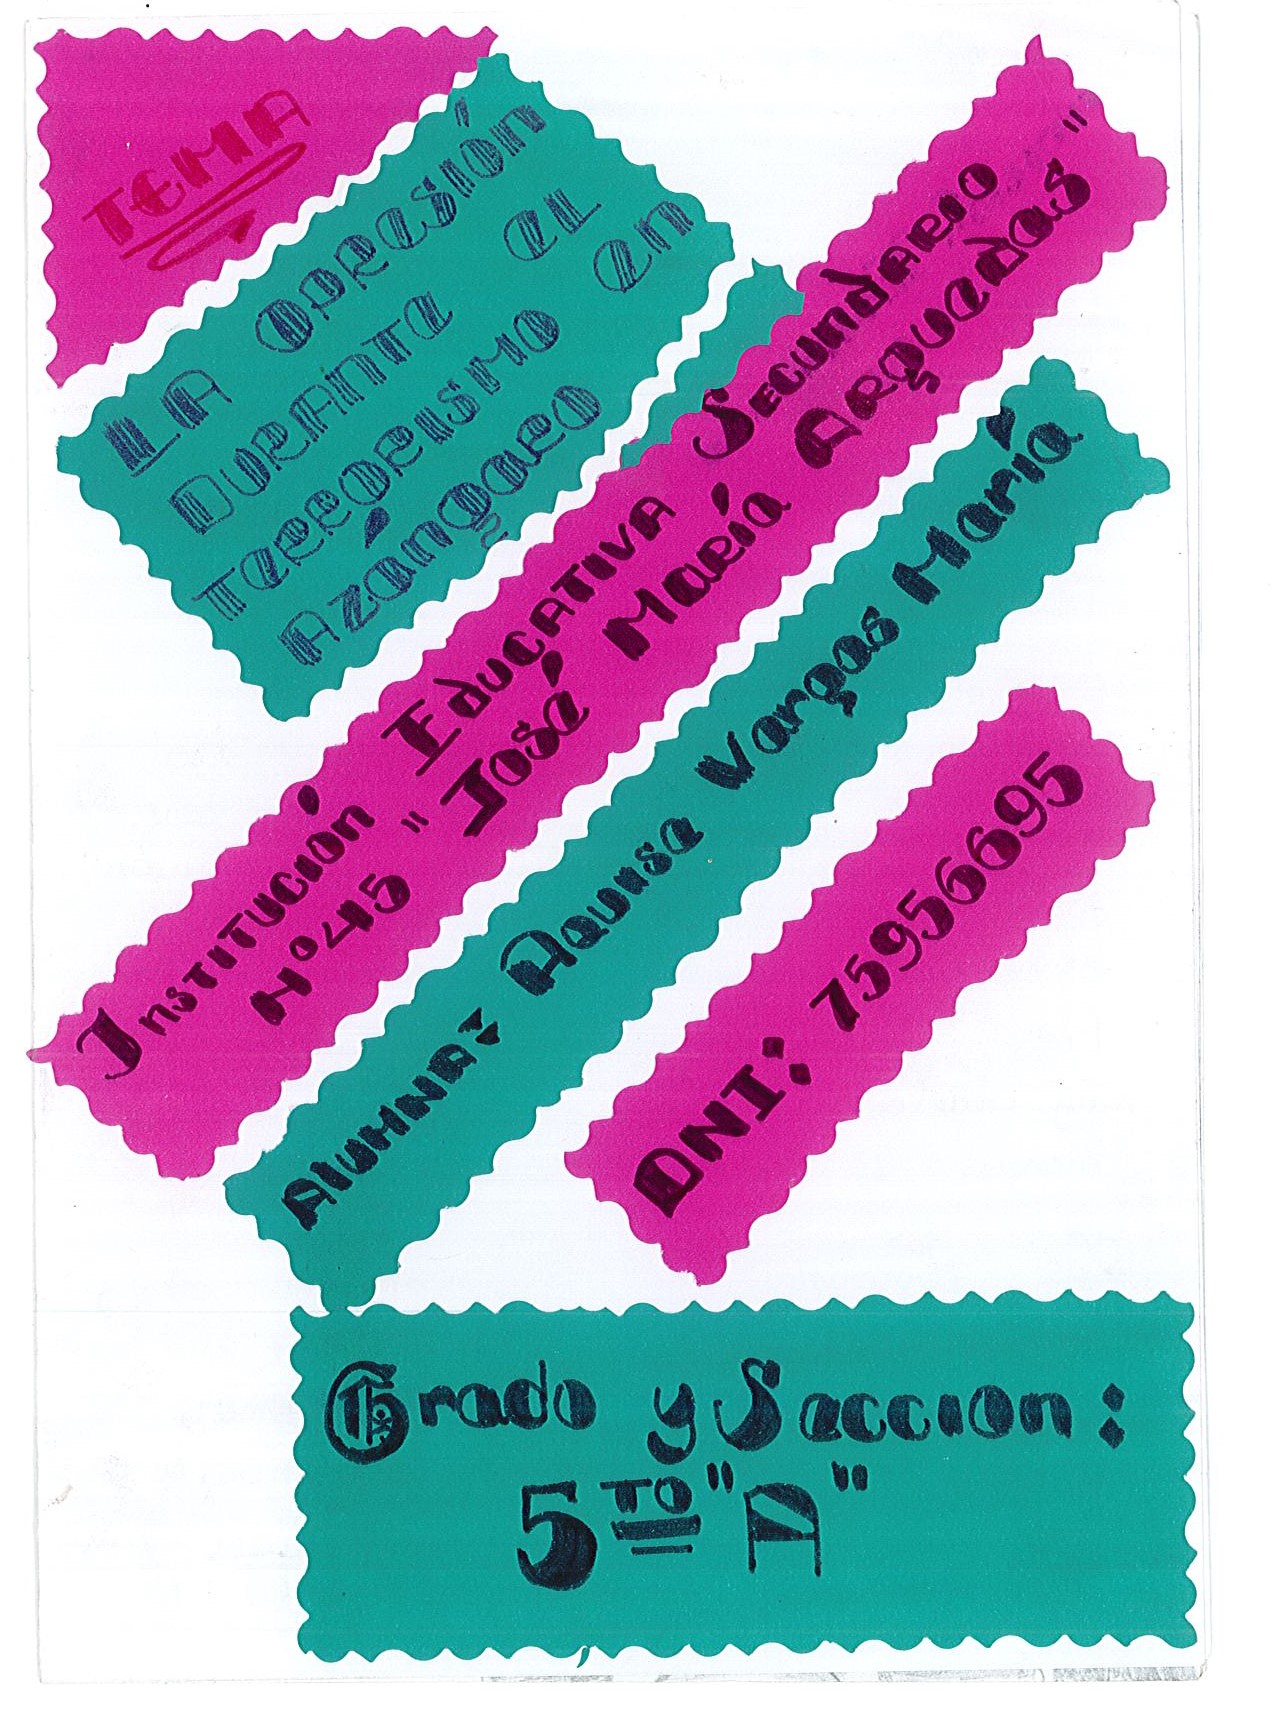 TEMA
LA OPRESIÓN
DURANTE EL
TERRORISMO EN
AZÁNGARO
INSTITUCIÓN EDUCATIVA SECUNDARIO
N°45 "JOSÉ MARÍA ARGUEDAS"
ALUMNA: Aquise Vargas María
DNI: 75956695
Grado y Seccion:
5TO "A"